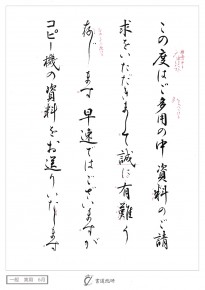 この度はご多用の中資料のご請
求をいただきまして誠に有難う
存じます早速ではございますが
コピー機の資料をお送りいたします